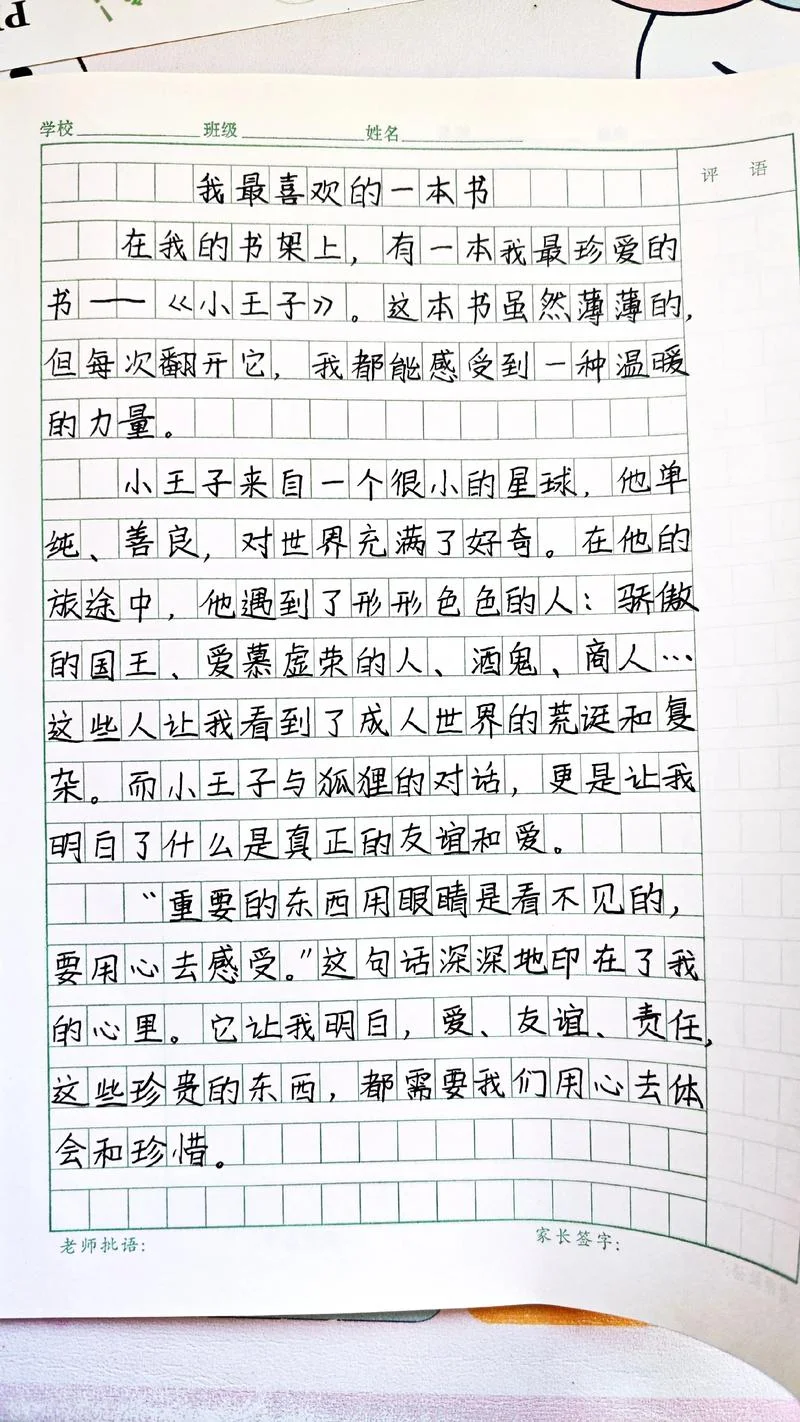 学校 班级 姓名
评语
我最喜欢的一本书
在我的书架上，有一本我最珍爱的
书——《小王子》。这本书虽然薄薄的，
但每次翻开它，我都能感受到一种温暖
的力量。
小王子来自一个很小的星球，他单
纯、善良，对世界充满了好奇。在他的
旅途中，他遇到了形形色色的人：骄傲
的国王、爱慕虚荣的人、酒鬼、商人…
这些人让我看到了成人世界的荒诞和复
杂。而小王子与狐狸的对话，更是让我
明白了什么是真正的友谊和爱。
“重要的东西用眼睛是看不见的，
要用心去感受。”这句话深深地印在了我
的心里。它让我明白，爱、友谊、责任，
这些珍贵的东西，都需要我们用心去体
会和珍惜。
老师批语: 家长签字: